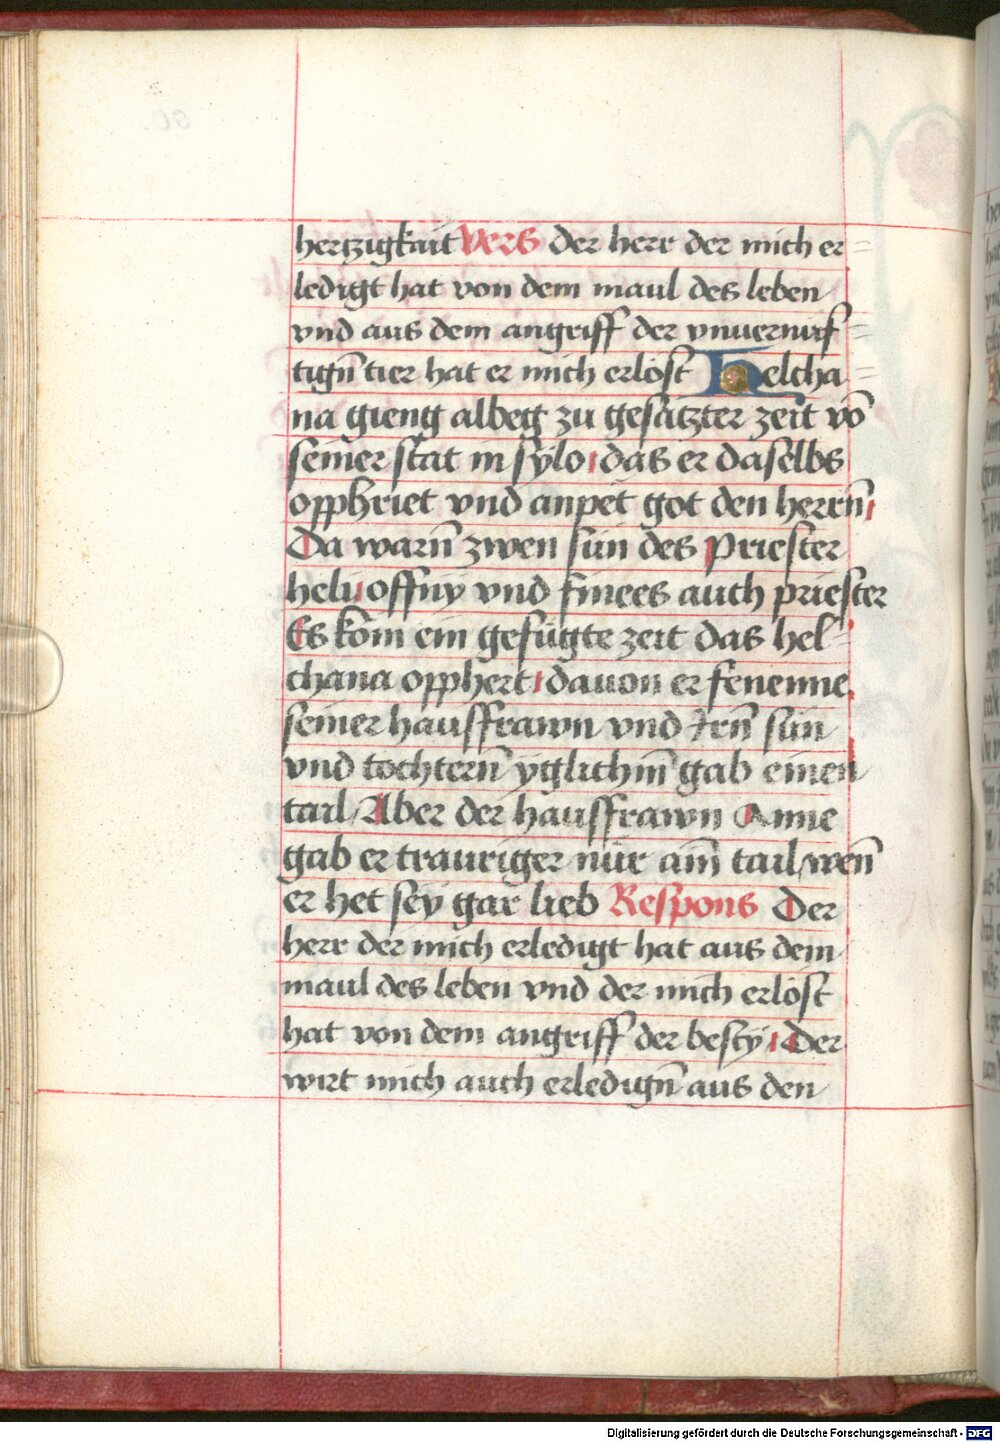 hertzigkait Vers der herr der mich er=
ledigt hat von dem maul des leben
vnd aus dem angriff der vnuernüf=
tign̄ tier hat er mich erlöst Helcha=
na gieng albeg zu gesatzter zeit vō
seiner stat in sylo das er daselbs
oppheiet vnd anpet got den herrn̄
Da warn̄ zwen sün des Priester
heli offny vnd finees auch priester
Es kom ein gefügte zeit das hel=
chana opphert dauon er fenenne
seiner hauffrawn vnd Irn̄ sün
vnd tochtern̄ yglichm̄ gab einen
tail Aber der hauffrawn Anne
gab er trauriger nür aim̄ tail wen̄
er het sey gar lieb Respons Der
herr der mich erledigt hat aus dem
maul des leben vnd der mich erlöst
hat von dem angriff der besty Der
wirt mich auch erledign̄ aus den
Digitalisierung gefördert durch die Deutsche Forschungsgemeinschaft - DFG